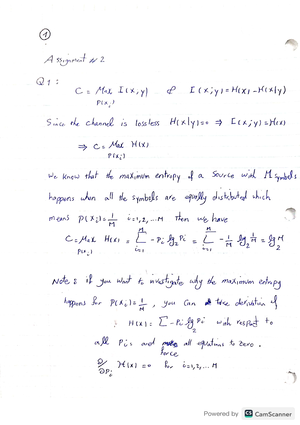 1
Assignment #2
Q1:
C = Max I(x,y) & I(x;y) = H(x) - H(x|y)
P(x_i)
Since the channel is lossless H(x|y)=0 ⇒ I(x;y)=H(x)
⇒ C = Max H(x)
P(x_i)
We know that the maximum entropy of a source with M symbols
happens when all the symbols are equally distributed which
means P(x_i)=1/M i=1,2,...M Then we have
C = Max H(x) = Σ -P_i lg_2 P_i = Σ -1/M lg_2 1/M = lg_2 M
P(x_i) i=1 M i=1 M
Note: if you want to investigate why the maximum entropy
happens for P(x_i)=1/M, you can take derivation of
H(x) = Σ -P_i lg_2 P_i with respect to
all P_i's and force all equations to zero.
∂/∂P_i H(x) = 0 for i=1,2,...M
Powered by CS CamScanner